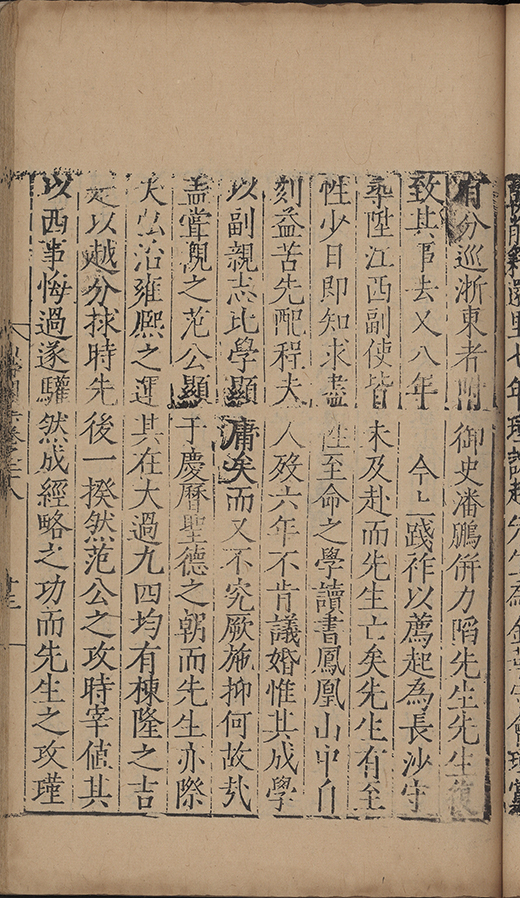 還里七年
有分巡浙東者附御史潘鵬併力陷先生先生復
致其事去又八年 今上踐祚以薦起為長沙守
陞江西副使皆未及赴而先生亡矣先生有至
性少日即知求盡性至命之學讀書鳳凰山中自
刻益苦先配程夫人歿六年不肯議婚惟其成學
以副親志比學顯庸矣而又不究厥施抑何故哉
盖嘗覩之范公顯于慶曆聖德之朝而先生亦際
夫弘治雍熙之運其在大過九四均有棟隆之吉
是以越分捄時先後一揆然范公之攻時宰值其
以西事悔過遂驩然成經略之功而先生之攻瑾